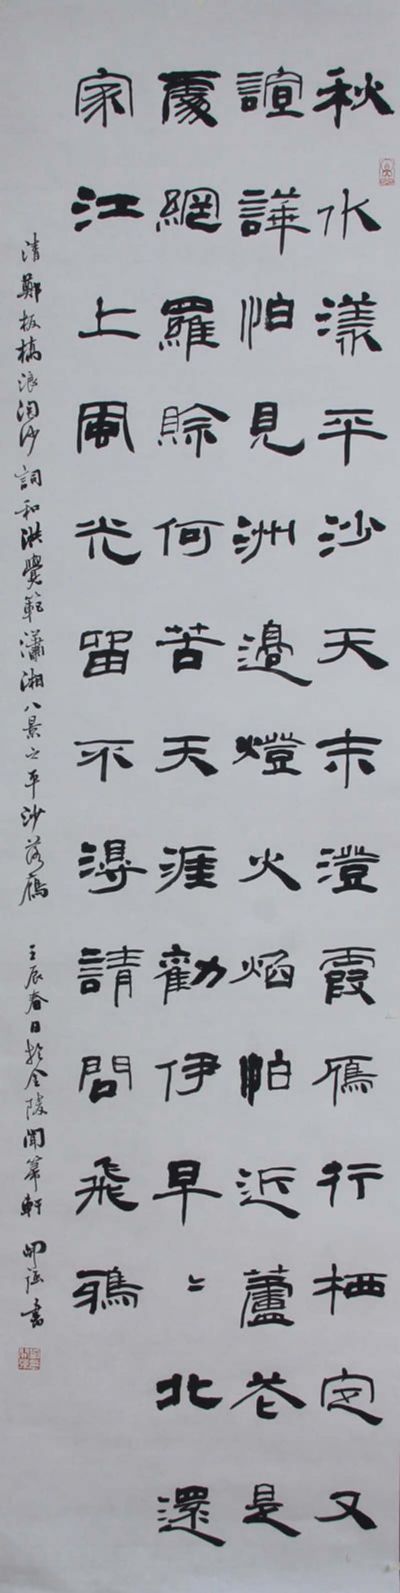 秋水漾平沙天末澄霞鴈行栖定又
諠譁怕見洲邊燈火焰怕近蘆花是
處網羅賒何苦天涯勸伊早〻北還
家江上風光留不得請問飛鴉
清鄭板橋浪淘沙詞和洪覺範瀟湘八景之平沙落鴈 壬辰春日於金陵聞箏軒 書